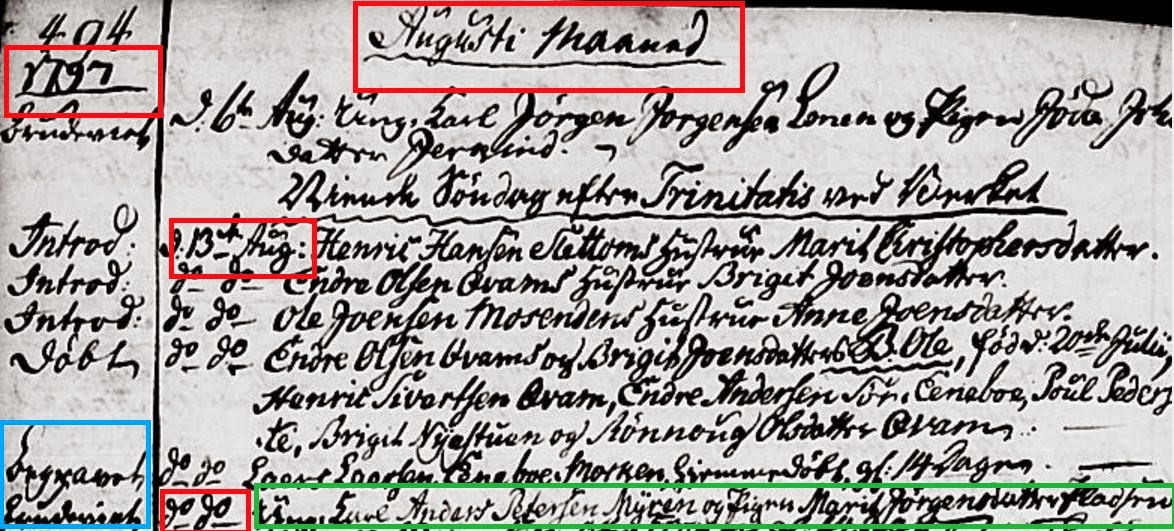 494
Augusti Maaned
1797
Brudeviet d. 6te Aug: Ung. Karl Jörgen Jörgensen Lonen og Pigen Jöda Joh
datter
Niende Söndag efter Trinitatis ved Verket
Introd: d. 13de Aug: Henric Hansen Slettoms Hustrue Marit Kristophersdatter.
Introd: do do Endre Olsen Qvams Hustrue Brigit Joensdatter.
Introd: do do Ole Joensen Mosendens Hustrue Anne Joensdatter.
Döbt do do Endre Olsen Qvams og Brigit Joensdatters B. Ole, föd d: 20de Julii,
Henric Sivertsen Qvam, Endre Andersen Poul Peders
te, Brigit Nyestuen og Rönnoug Olsdatter Qvam.
begravet do do Hiemmedöbt, gl: 14 Dage.
Brudeviet do do Ung. Karl Anders Petersen Myren og Pigen Marit Jörgensdatter